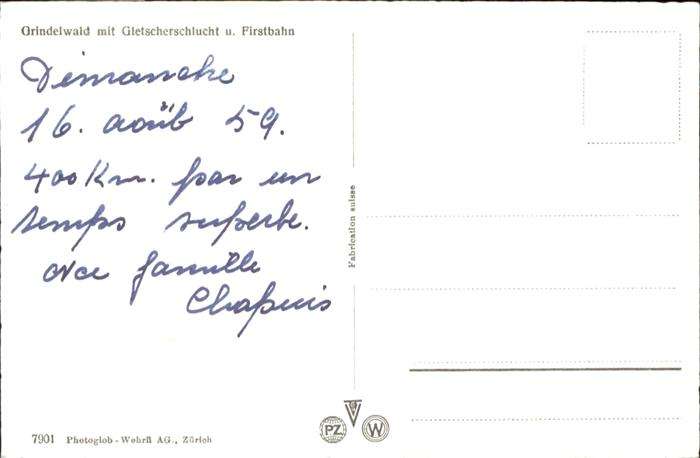 Grindelwald mit Gletscherschlucht u. Firstbahn
Dimanche
16. aoüb 59.
400 Km. par un
temps superbe.
avec famille
Chapuis
Fabrication suisse
PZ W
7901 Photoglob-Wehrli AG., Zürich